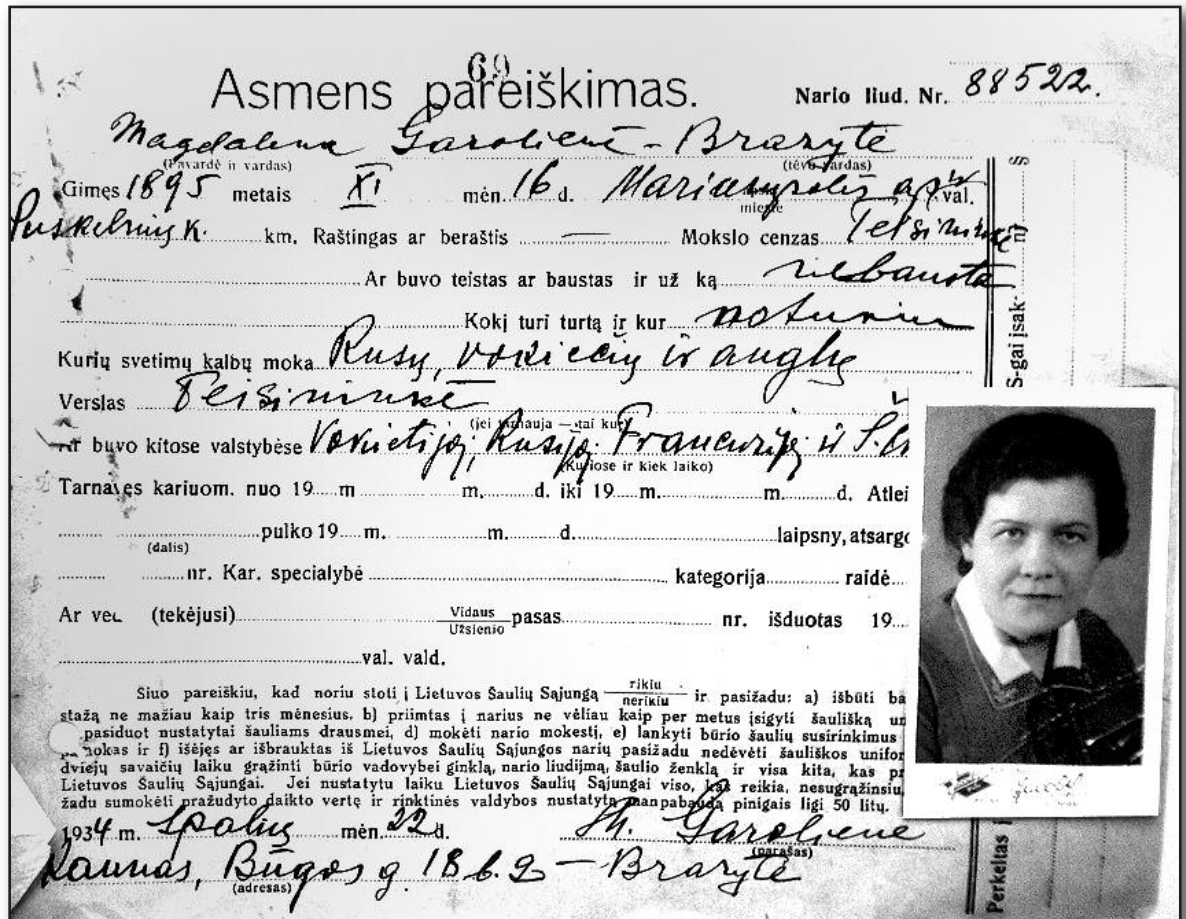 69
Asmens pareiškimas. Nario liud. Nr. 88522.
Magdalena Garolienė - Brazytė
(Pavardė ir vardas) (tėvo vardas)
Gimęs 1895 metais XI mėn. 16 d. Mariampolės ap. ir val.
Puskelnių k. km. Raštingas ar beraštis — Mokslo cenzas Teisininkė
Ar buvo teistas ar baustas ir už ką nebausta
Kokį turi turtą ir kur neturiu
Kurių svetimų kalbų moka Rusų, vokiečių ir anglų
Verslas Teisininkė
(jei tarnauja — tai kur)
Ar buvo kitose valstybėse Vokietijoj, Rusijoj, Francuzijoj ir Š.
(Kuriose ir kiek laiko)
Tarnavęs kariuom. nuo 19 m m. d. iki 19 m. m. d. Atlei
pulko 19 m. m. d. laipsny, atsargo
(dalis)
nr. Kar. specialybė kategorija raidė
Ar ved (tekėjusi) Vidaus pasas nr. išduotas 19
Užsienio
val. vald.
Šiuo pareiškiu, kad noriu stoti į Lietuvos Šaulių Sąjungą rikiu ir pasižadu: a) išbūti ba
nerikiu
stažą ne mažiau kaip tris mėnesius, b) priimtas į narius ne vėliau kaip per metus įsigyti šaulišką un
pasiduot nustatytai šauliams drausmei, d) mokėti nario mokestį, e) lankyti būrio šaulių susirinkimus
pamokas ir f) išėjęs ar išbrauktas iš Lietuvos Šaulių Sąjungos narių pasižadu nedėvėti šauliškos unifor
dviejų savaičių laiku grąžinti būrio vadovybei ginklą, nario liudijmą, šaulio ženklą ir visa kita, kas pr
Lietuvos Šaulių Sąjungai. Jei nustatytu laiku Lietuvos Šaulių Sąjungai viso, kas reikia, nesugrąžinsiu,
žadu sumokėti pražudyto daikto vertę ir rinktinės valdybos nustatytą pabaudą pinigais ligi 50 litų.
1934 m. Spalių mėn. 22 d. M. Garolienė
(parašas)
Kaunas, Būgos g. 18 b. 2 - Brazytė
(adresas)
S-gai įsak.
Perkeltas į